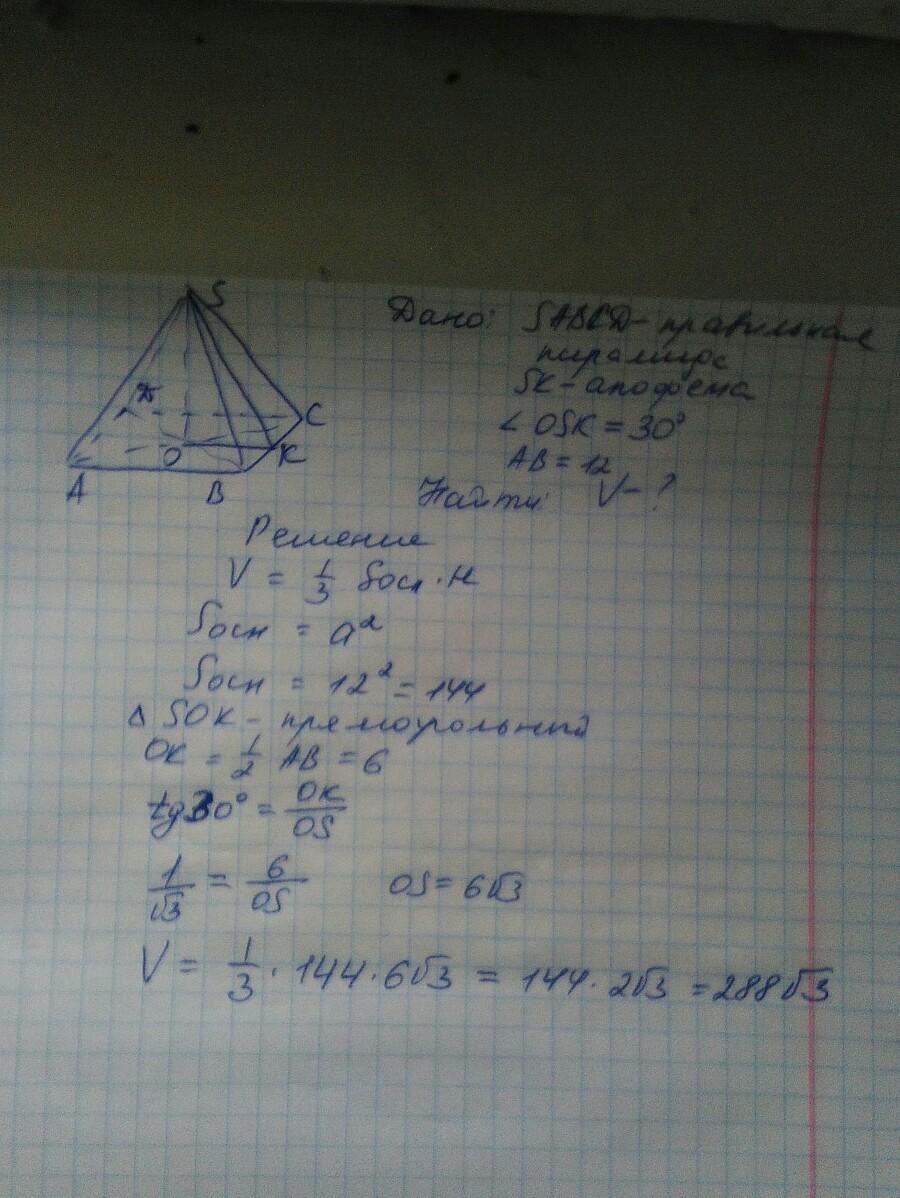 S
Дано: SABCD - правильная
пирамида
SK - апофема
D
C
∠ OSK = 30°
O
K
AB = 12
A
B
Найти: V - ?
Решение
V = 1/3 Sосн · H
Sосн = a²
Sосн = 12² = 144
Δ SOK - прямоугольный
OK = 1/2 AB = 6
tg30° = OK/OS
1/√3 = 6/OS OS = 6√3
V = 1/3 · 144 · 6√3 = 144 · 2√3 = 288√3